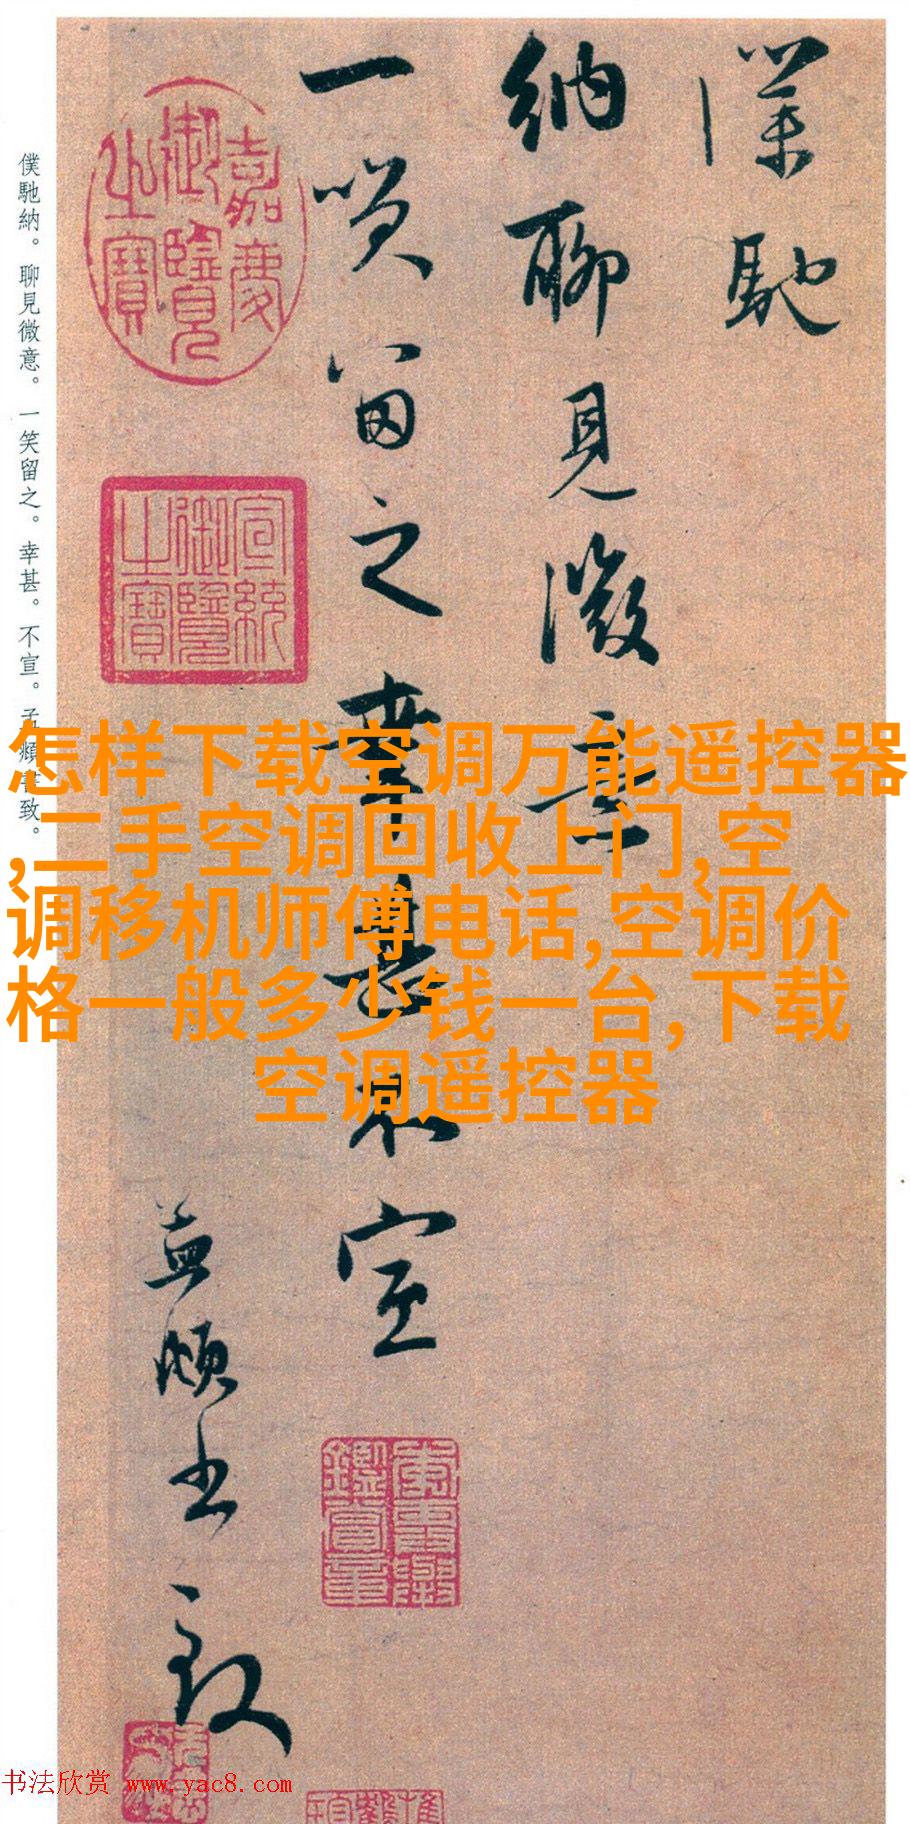 僕馳
納聊見微意
一笑留之幸甚不宣
孟頫書致
嘉慶
御覽
之寶
宣統
御覽
之寶
僕馳納。聊見微意。一笑留之。幸甚。不宣。孟頫書致。
怎样下载空调万能遥控器
,二手空调回收上门,空
调移机师傅电话,空调价
格一般多少钱一台,下载
空调遥控器
书法欣赏 www.yac8.com